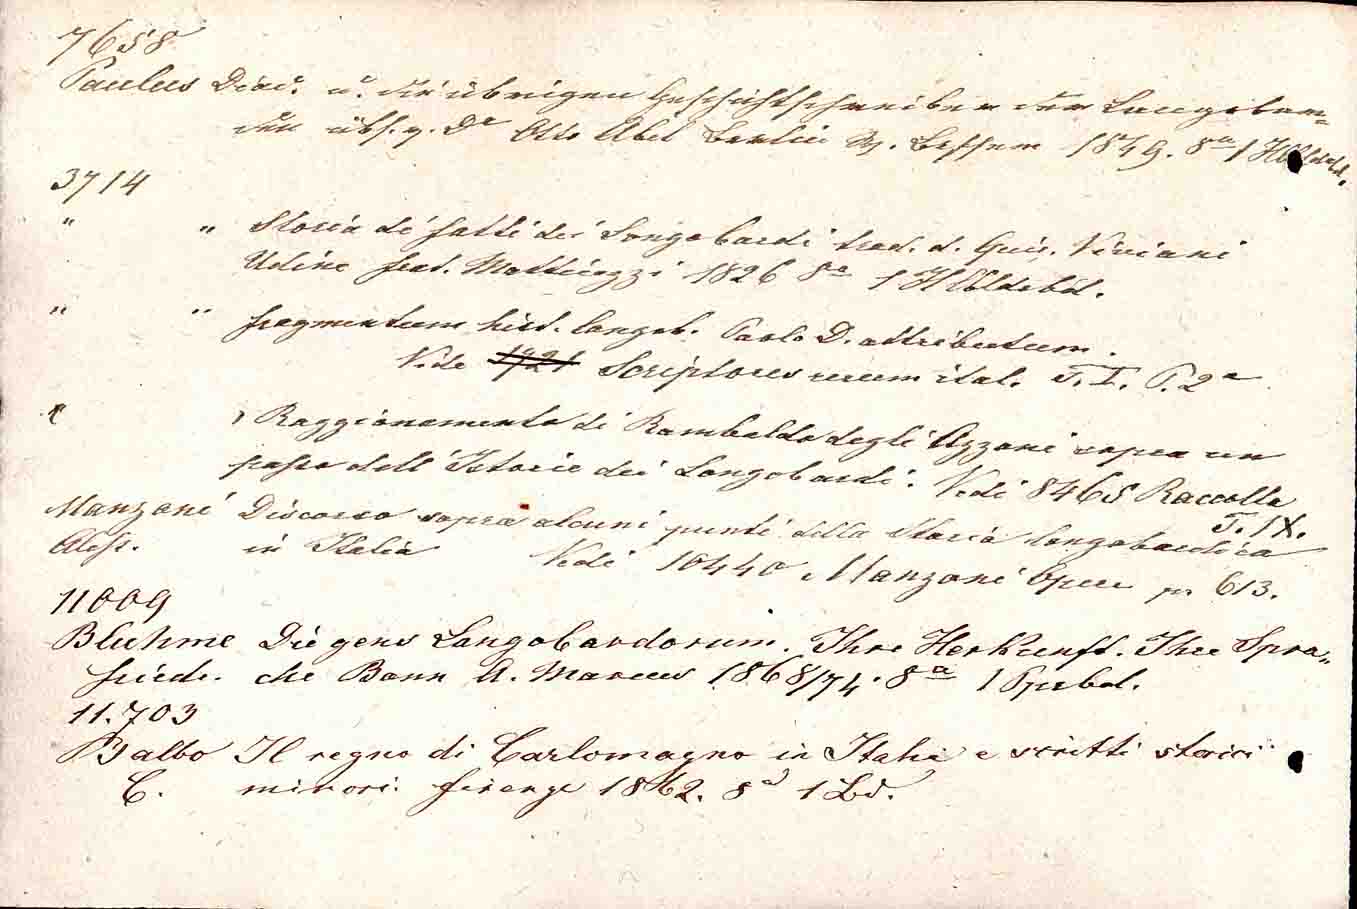 7658
Paulus Diac. u. die übrigen Geschichtschreiber der Langobar-
den übs. v. Dr Otto Abel Berlin W. Besser 1849. 8va 1 Hlbldrbd.
3714
" " Storia dei fatti dei Longobardi trad. d. Quir. Viviani
Udine frat. Mattiuzzi 1826 8a 1 Hlbldrbd.
" " fragmentum hist. langob. Paolo D. attributum.
Vide Scriptores rerum ital. T. I. P. 2a
" " Raggionamento di Rambaldo degli Azzoni sopra un
passo dell' Istorie dei Longobardi. Vedi 8465 Raccolta
T. IX.
Manzoni Discorso sopra alcuni punti della Storia longobardica
Aless. in Italia Vedi 10440 Manzoni Opere p. 613.
11009
Bluhme Die gens Langobardorum. Ihre Herkunft. Ihre Spra-
friedr. che Bonn A. Marcus 1868/74. 8va 1 Ppbd.
11.703
Balbo Il regno di Carlomagno in Italia e scritti storici
C. minori. firenze 1862. 8a 1 Bd.